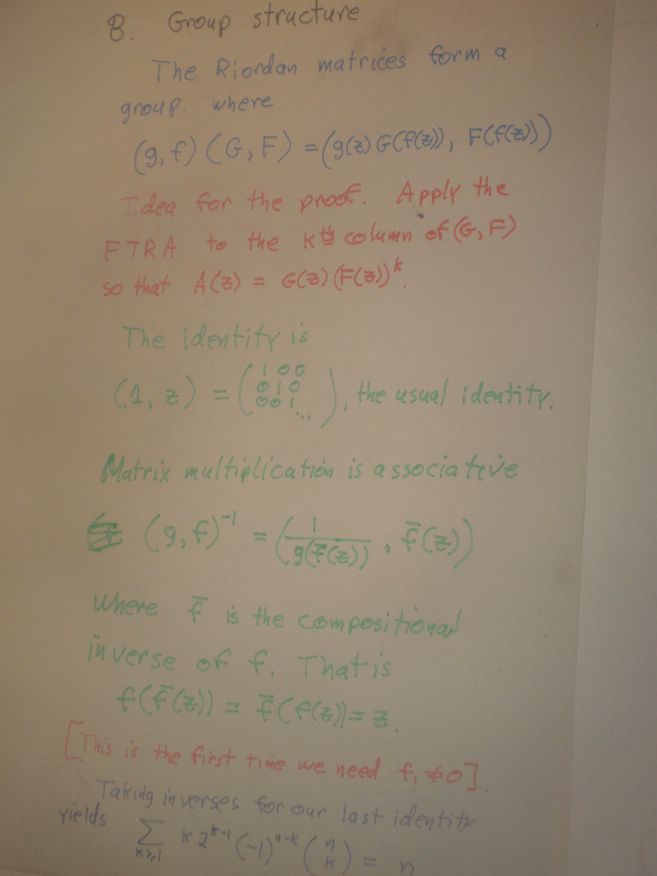 B. Group structure
The Riordan matrices form a
group. where
(g, f) (G, F) = (g(z) G(f(z)), F(f(z)))
Idea for the proof. Apply the
FTRA to the kth column of (G, F)
so that A(z) = G(z) (F(z))^k.
The identity is
(1, z) = ( 1 0 0
0 1 0
0 0 1 ... ), the usual identity.
Matrix multiplication is associative
(g, f)^-1 = ( 1 / g(f̄(z)) , f̄(z))
where f̄ is the compositional
inverse of f. That is
f(f̄(z)) = f̄(f(z)) = z.
[This is the first time we need f₁ ≠ 0].
Taking inverses for our last identity
yields
∑ k≥1 k 2^k-1 (-1)^n-k (n k) = n